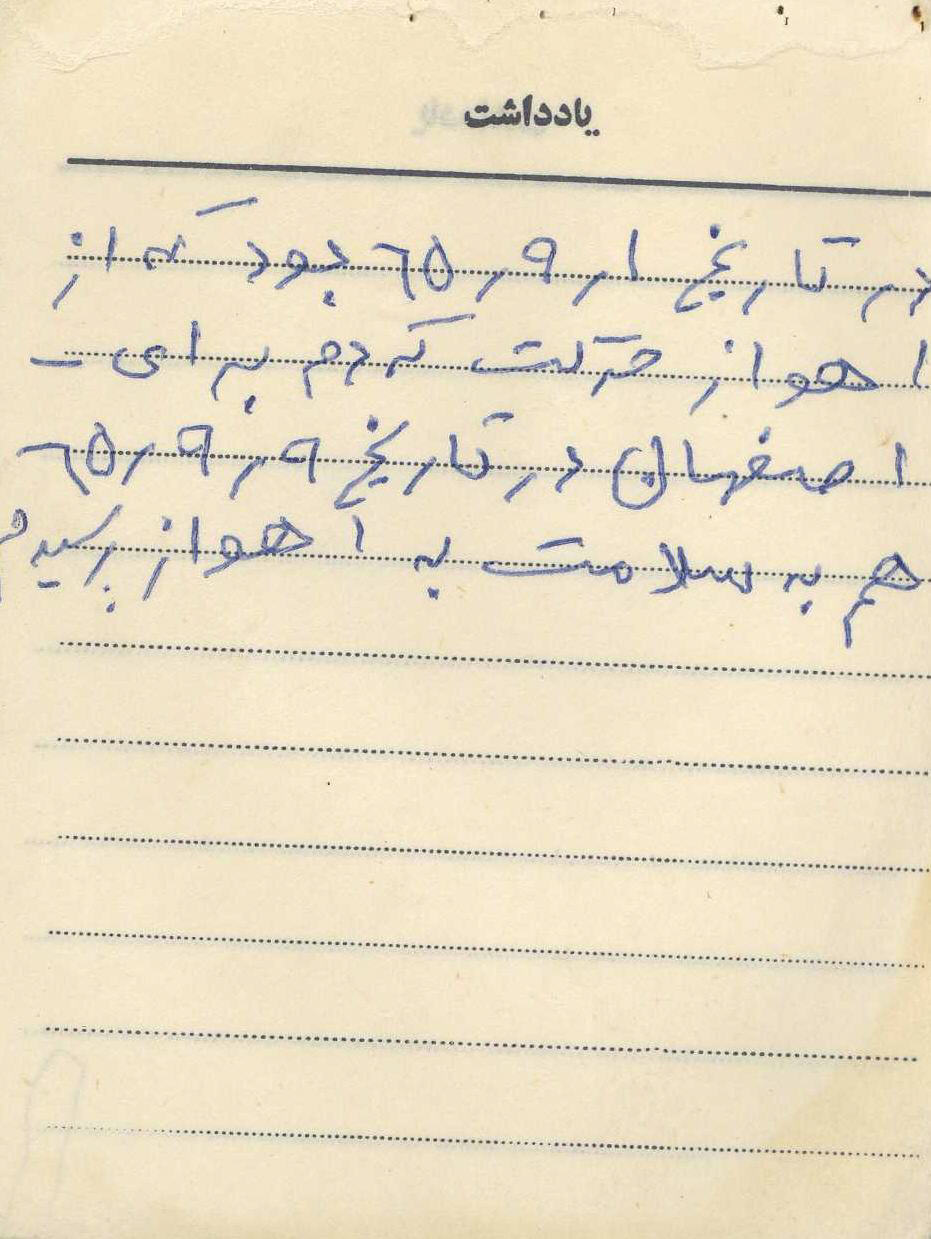 یادداشت
در تاریخ ۱ر۹ر۶۵ بود که از
اهواز حرکت کردم برای -
اصفهان در تاریخ ۹ر۹ر۶۵
هم به سلامت به اهواز رسیدم